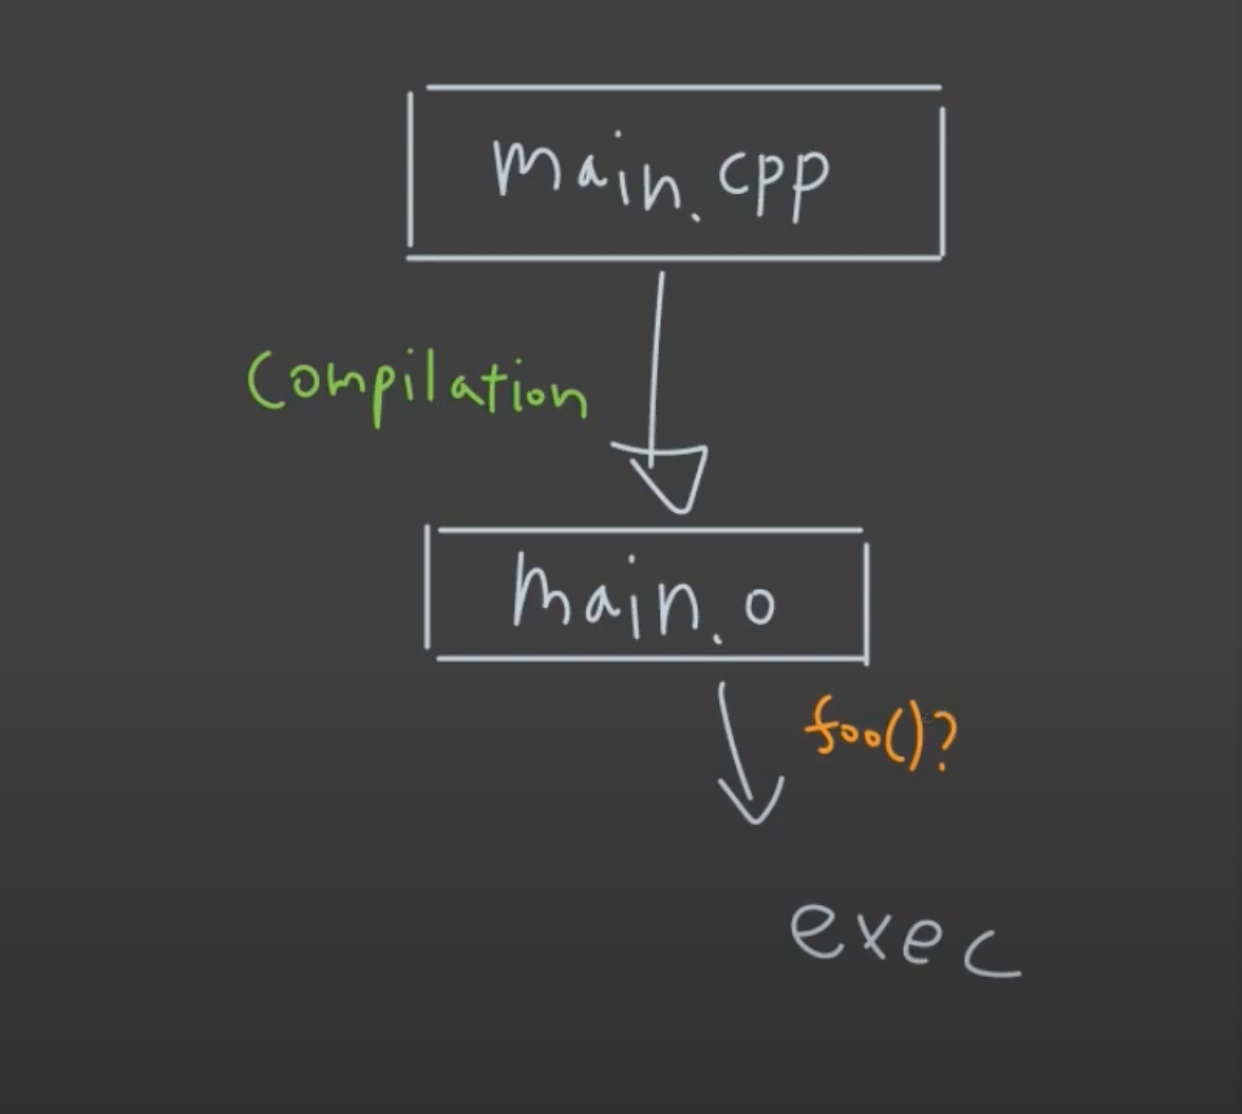 main.cpp
Compilation
main.o
foo()?
exec